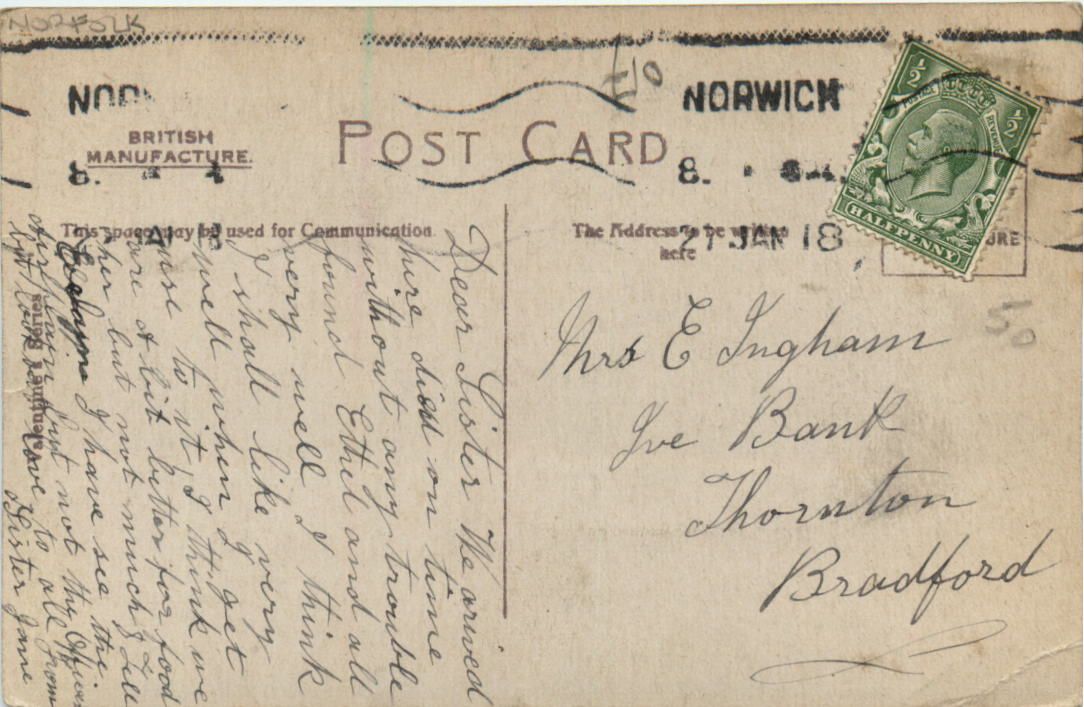 NORFOLK
NORWICH
BRITISH
MANUFACTURE.
POST CARD
8.
8.
27 JAN 18
½ ½
POSTAGE REVENUE
HALFPENNY
This space may be used for Communication
The Address to be written
here
Valentine's Series
Dear Sister We arived
here on time
without any trouble
found Ethel and all
very well I think
I shall like very
well when I get
use to it, I think we
are a bit better for food
her but not much I tell
I have see the
airplain but not the Officer
but love to all from
Sister Jane
Mrs E Ingham
Ive Bank
Thornton
Bradford
50